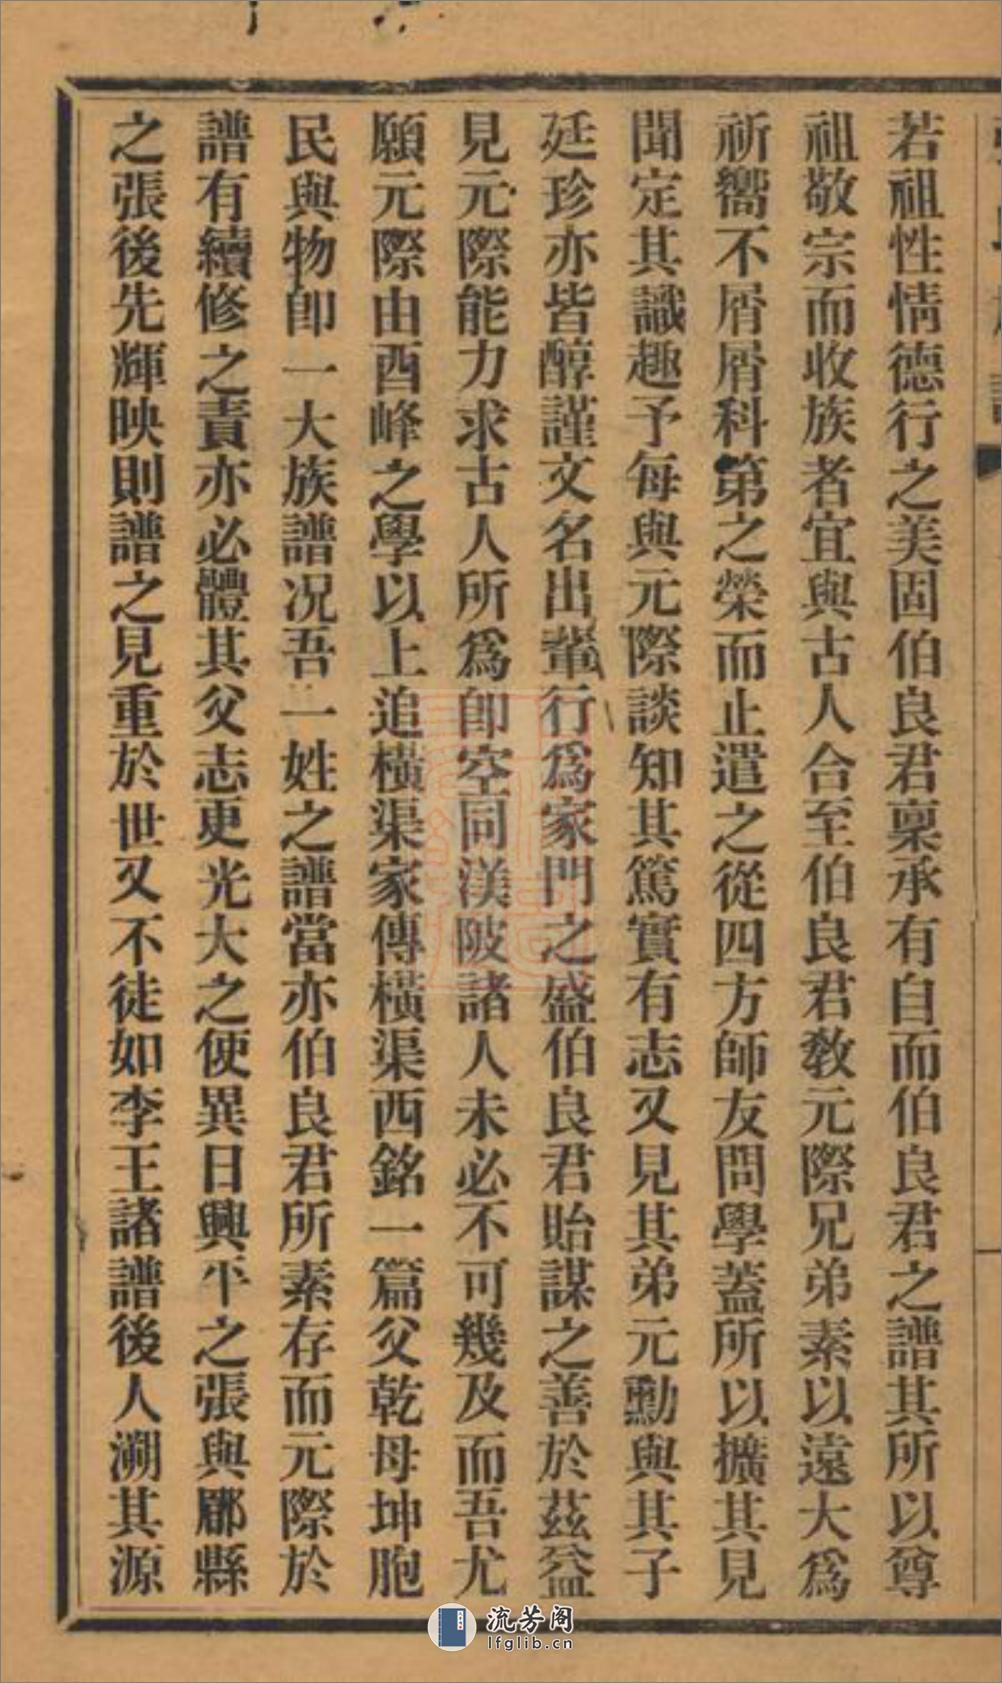 若祖性情德行之美固伯良君稟承有自而伯良君之譜其所以尊
祖敬宗而收族者宜與古人合至伯良君教元際兄弟素以遠大為
祈嚮不屑屑科第之榮而止遣之從四方師友問學蓋所以擴其見
聞定其識趣予每與元際談知其篤實有志又見其弟元勳與其子
廷珍亦皆醇謹文名出輩行爲家門之盛伯良君貽謀之善於茲益
見元際能力求古人所爲卽空同渼陂諸人未必不可幾及而吾尤
願元際由酉峰之學以上追橫渠家傳橫渠西銘一篇父乾母坤胞
民與物卽一大族譜况吾一姓之譜當亦伯良君所素存而元際於
譜有續修之責亦必體其父志更光大之使異日興平之張與郿縣
之張後先輝映則譜之見重於世又不徒如李王諸譜後人溯其源
流芳阁
lfglib.cn